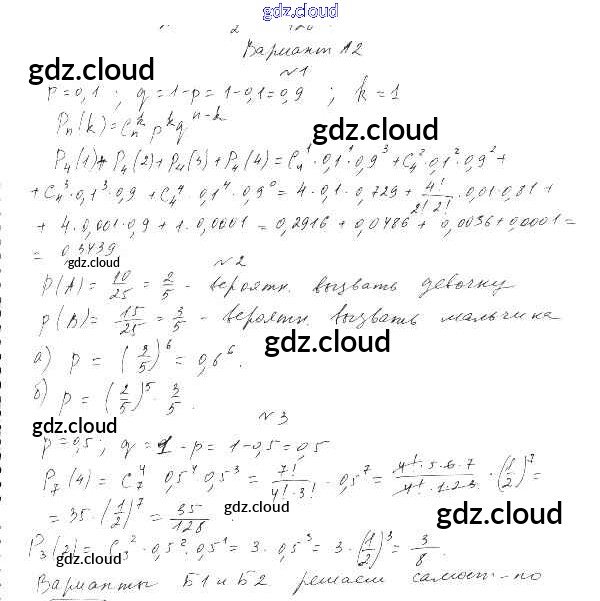 gdz.cloud
Вариант А2
gdz.cloud
№1
p=0,1 ; q=1-p=1-0,1=0,9 ; k=1
gdz.cloud
Pₙ(k)=Cₙᵏ pᵏqⁿ⁻ᵏ
P₄(1)+P₄(2)+P₄(3)+P₄(4)=C₄¹·0,1¹·0,9³+C₄²·0,1²·0,9²+
+C₄³·0,1³·0,9+C₄⁴·0,1⁴·0,9⁰=4·0,1·0,729+4!/(2!2!)·0,01·0,81+
+4·0,001·0,9+1·0,0001=0,2916+0,0486+0,0036+0,0001=
=0,3439
gdz.cloud
№2
P(A)=10/25=2/5 - вероятн. вызвать девочку
P(B)=15/25=3/5 - вероятн. вызвать мальчика
gdz.cloud
а) p=(3/5)⁶=0,6⁶.
б) p=(2/5)⁵·3/5.
gdz.cloud
№3
p=0,5; q=1-p=1-0,5=0,5
P₇(4)=C₇⁴ 0,5⁴ 0,5³=7!/(4!·3!)·0,5⁷=4!·5·6·7/(4!·1·2·3)·(1/2)⁷=
=35·(1/2)⁷=35/128.
gdz.cloud
gdz.cloud
P₃(2)=C₃²·0,5²·0,5¹=3·0,5³=3·(1/2)³=3/8.
Варианты Б1 и Б2 решаем самост-но